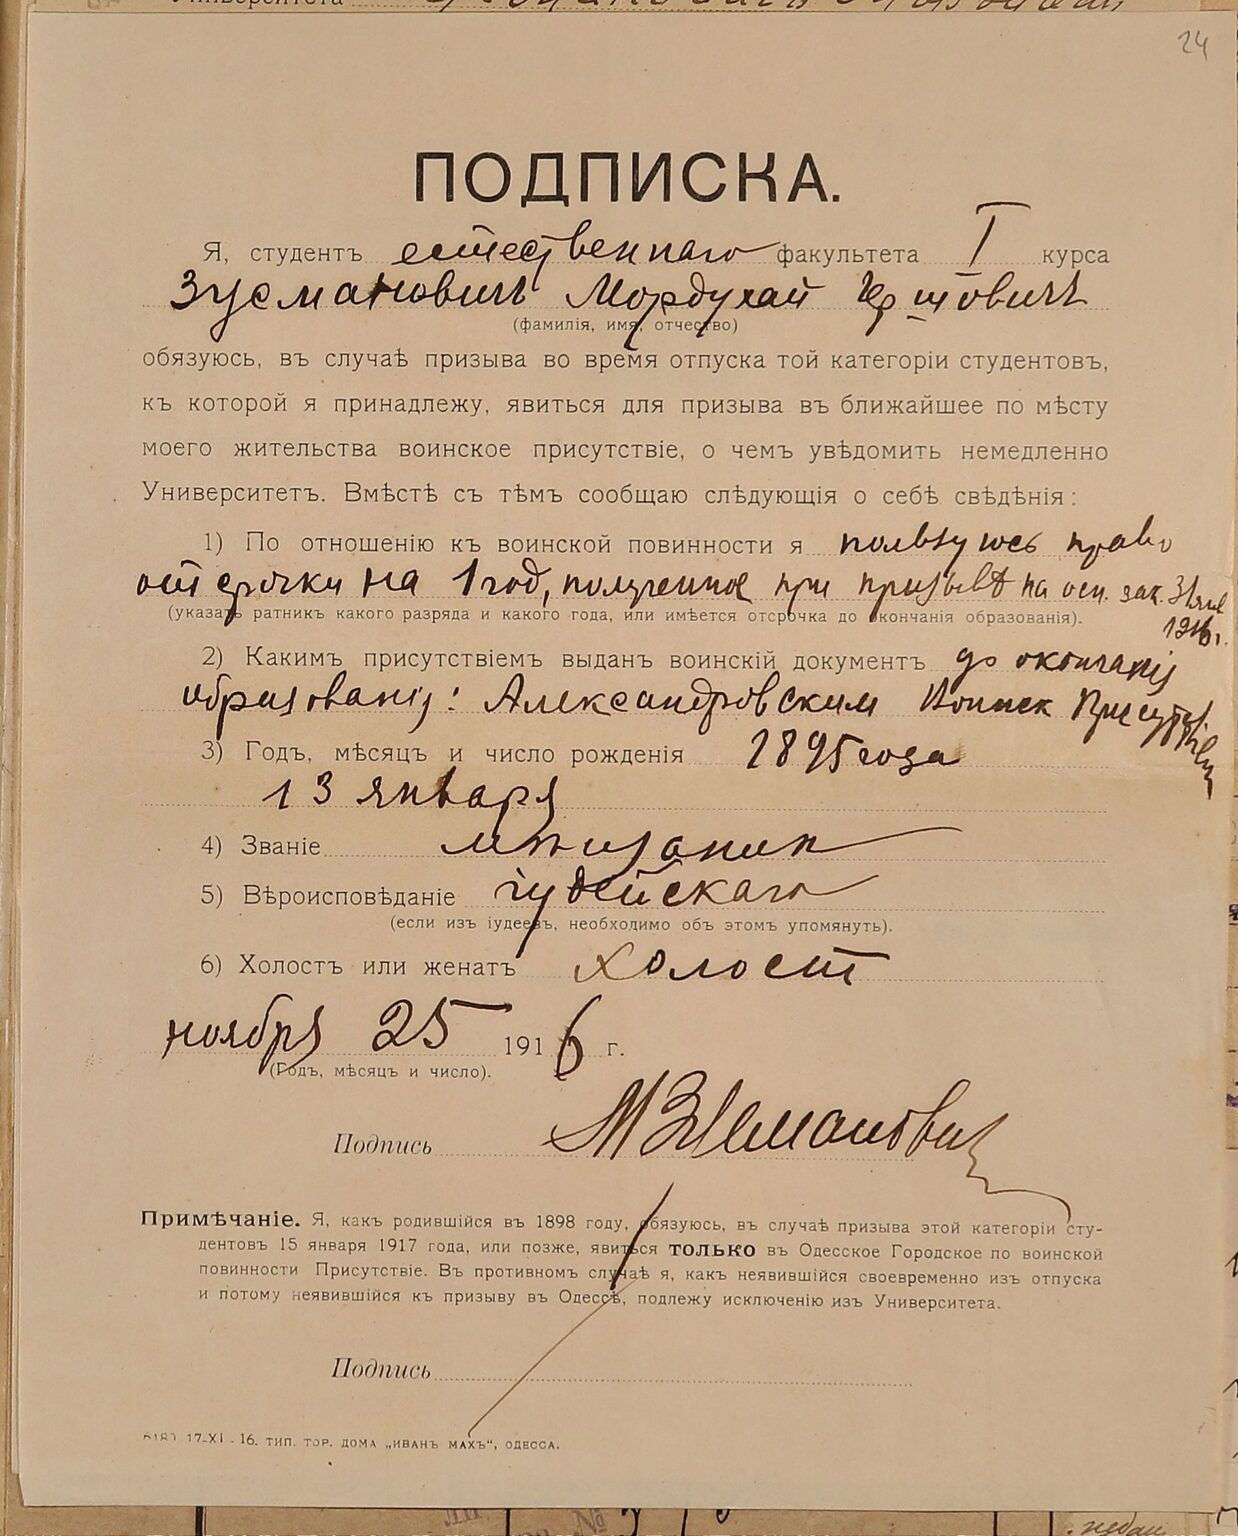 24
ПОДПИСКА.
Я, студентъ естественнаго факультета I курса
Зусмановичъ Мордухай Гершовичъ
(фамилія, имя, отчество)
обязуюсь, въ случаѣ призыва во время отпуска той категоріи студентовъ,
къ которой я принадлежу, явиться для призыва въ ближайшее по мѣсту
моего жительства воинское присутствіе, о чемъ увѣдомить немедленно
Университетъ. Вмѣстѣ съ тѣмъ сообщаю слѣдующія о себѣ свѣдѣнія:
1) По отношенію къ воинской повинности я пользуюсь право
отсрочки на 1 год, полученное при призывѣ на осн. зак. 31
(указать ратникъ какого разряда и какого года, или имѣется отсрочка до окончанія образованія).
1916 г.
2) Какимъ присутствіемъ выданъ воинскій документъ до окончанія
образованія: Александровским Воинск Присутствіем
3) Годъ, мѣсяцъ и число рожденія 1895 года
13 января
4) Званіе мѣщанин
5) Вѣроисповѣданіе іудейскаго
(если изъ іудеевъ, необходимо объ этомъ упомянуть).
6) Холостъ или женатъ холост
ноября 25 1916 г.
(Годъ, мѣсяцъ и число).
Подпись М Зусманович
Примѣчаніе. Я, какъ родившійся въ 1898 году, обязуюсь, въ случаѣ призыва этой категоріи сту-
дентовъ 15 января 1917 года, или позже, явиться ТОЛЬКО въ Одесское Городское по воинской
повинности Присутствіе. Въ противномъ случаѣ я, какъ неявившійся своевременно изъ отпуска
и потому неявившійся къ призыву въ Одессѣ, подлежу исключенію изъ Университета.
Подпись
17-XI - 16. ТИП. ТОР. ДОМА „ИВАНЪ МАХЪ“, ОДЕССА.